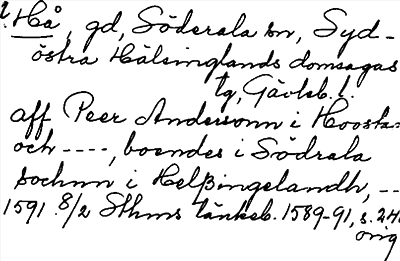 2. Hå, gd, Söderala sn, Syd-
östra Hälsinglands domsagas
tg, Gävleb. l.
aff Peer Andersonn i Hoosta
och ----, boendes i Södrala
Sochnn i Helßingelandh, --
1591 8/2 Sthms tänkeb. 1589-91, s. 24
orig